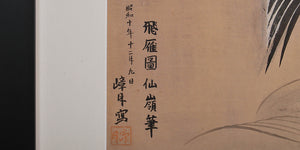 飛雁圖仙嶺筆
昭和十年十二月九日
嶂月寫